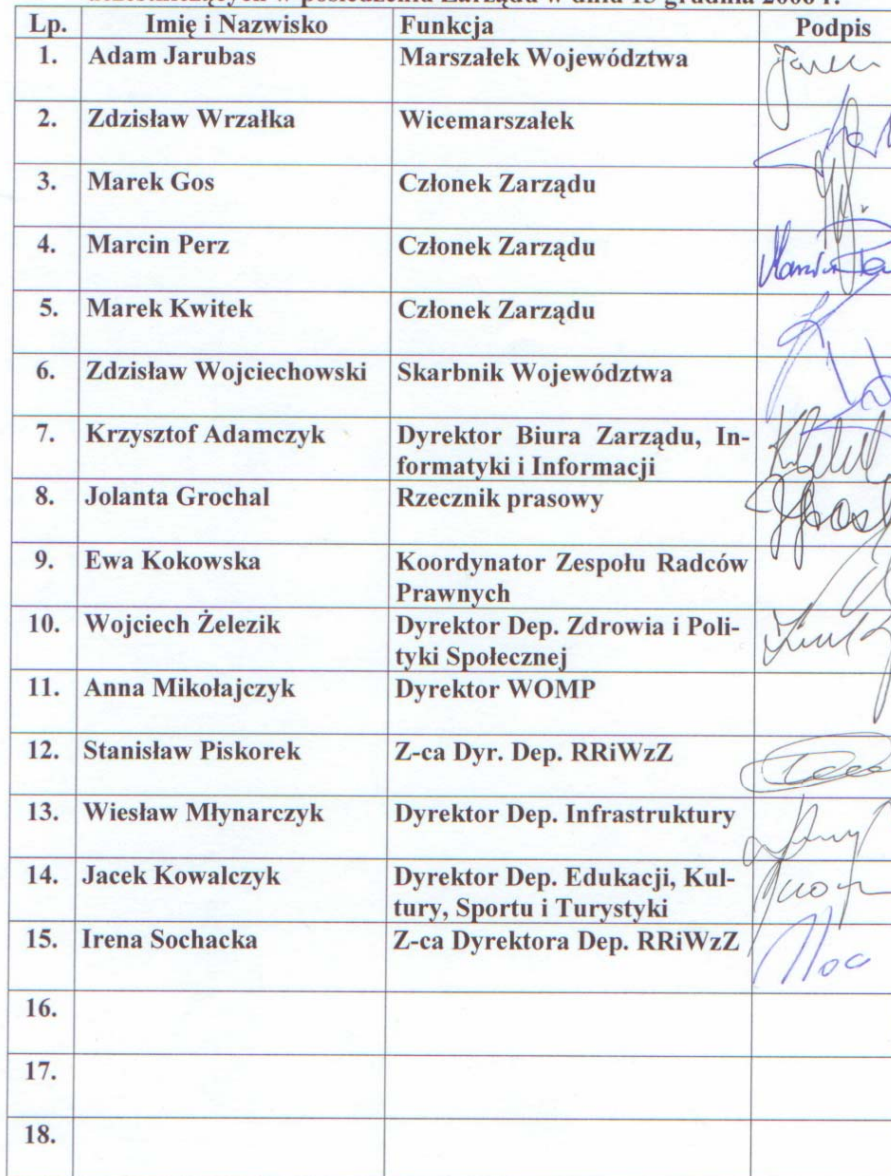 w posiedzeniu Zarządu w dniu 13 grudnia 2006 r.
Lp. Imię i Nazwisko Funkcja Podpis
1. Adam Jarubas Marszałek Województwa
2. Zdzisław Wrzałka Wicemarszałek
3. Marek Gos Członek Zarządu
4. Marcin Perz Członek Zarządu
5. Marek Kwitek Członek Zarządu
6. Zdzisław Wojciechowski Skarbnik Województwa
7. Krzysztof Adamczyk Dyrektor Biura Zarządu, In-
formatyki i Informacji
8. Jolanta Grochal Rzecznik prasowy
9. Ewa Kokowska Koordynator Zespołu Radców
Prawnych
10. Wojciech Żelezik Dyrektor Dep. Zdrowia i Poli-
tyki Społecznej
11. Anna Mikołajczyk Dyrektor WOMP
12. Stanisław Piskorek Z-ca Dyr. Dep. RRiWzZ
13. Wiesław Młynarczyk Dyrektor Dep. Infrastruktury
14. Jacek Kowalczyk Dyrektor Dep. Edukacji, Kul-
tury, Sportu i Turystyki
15. Irena Sochacka Z-ca Dyrektora Dep. RRiWzZ
16.
17.
18.